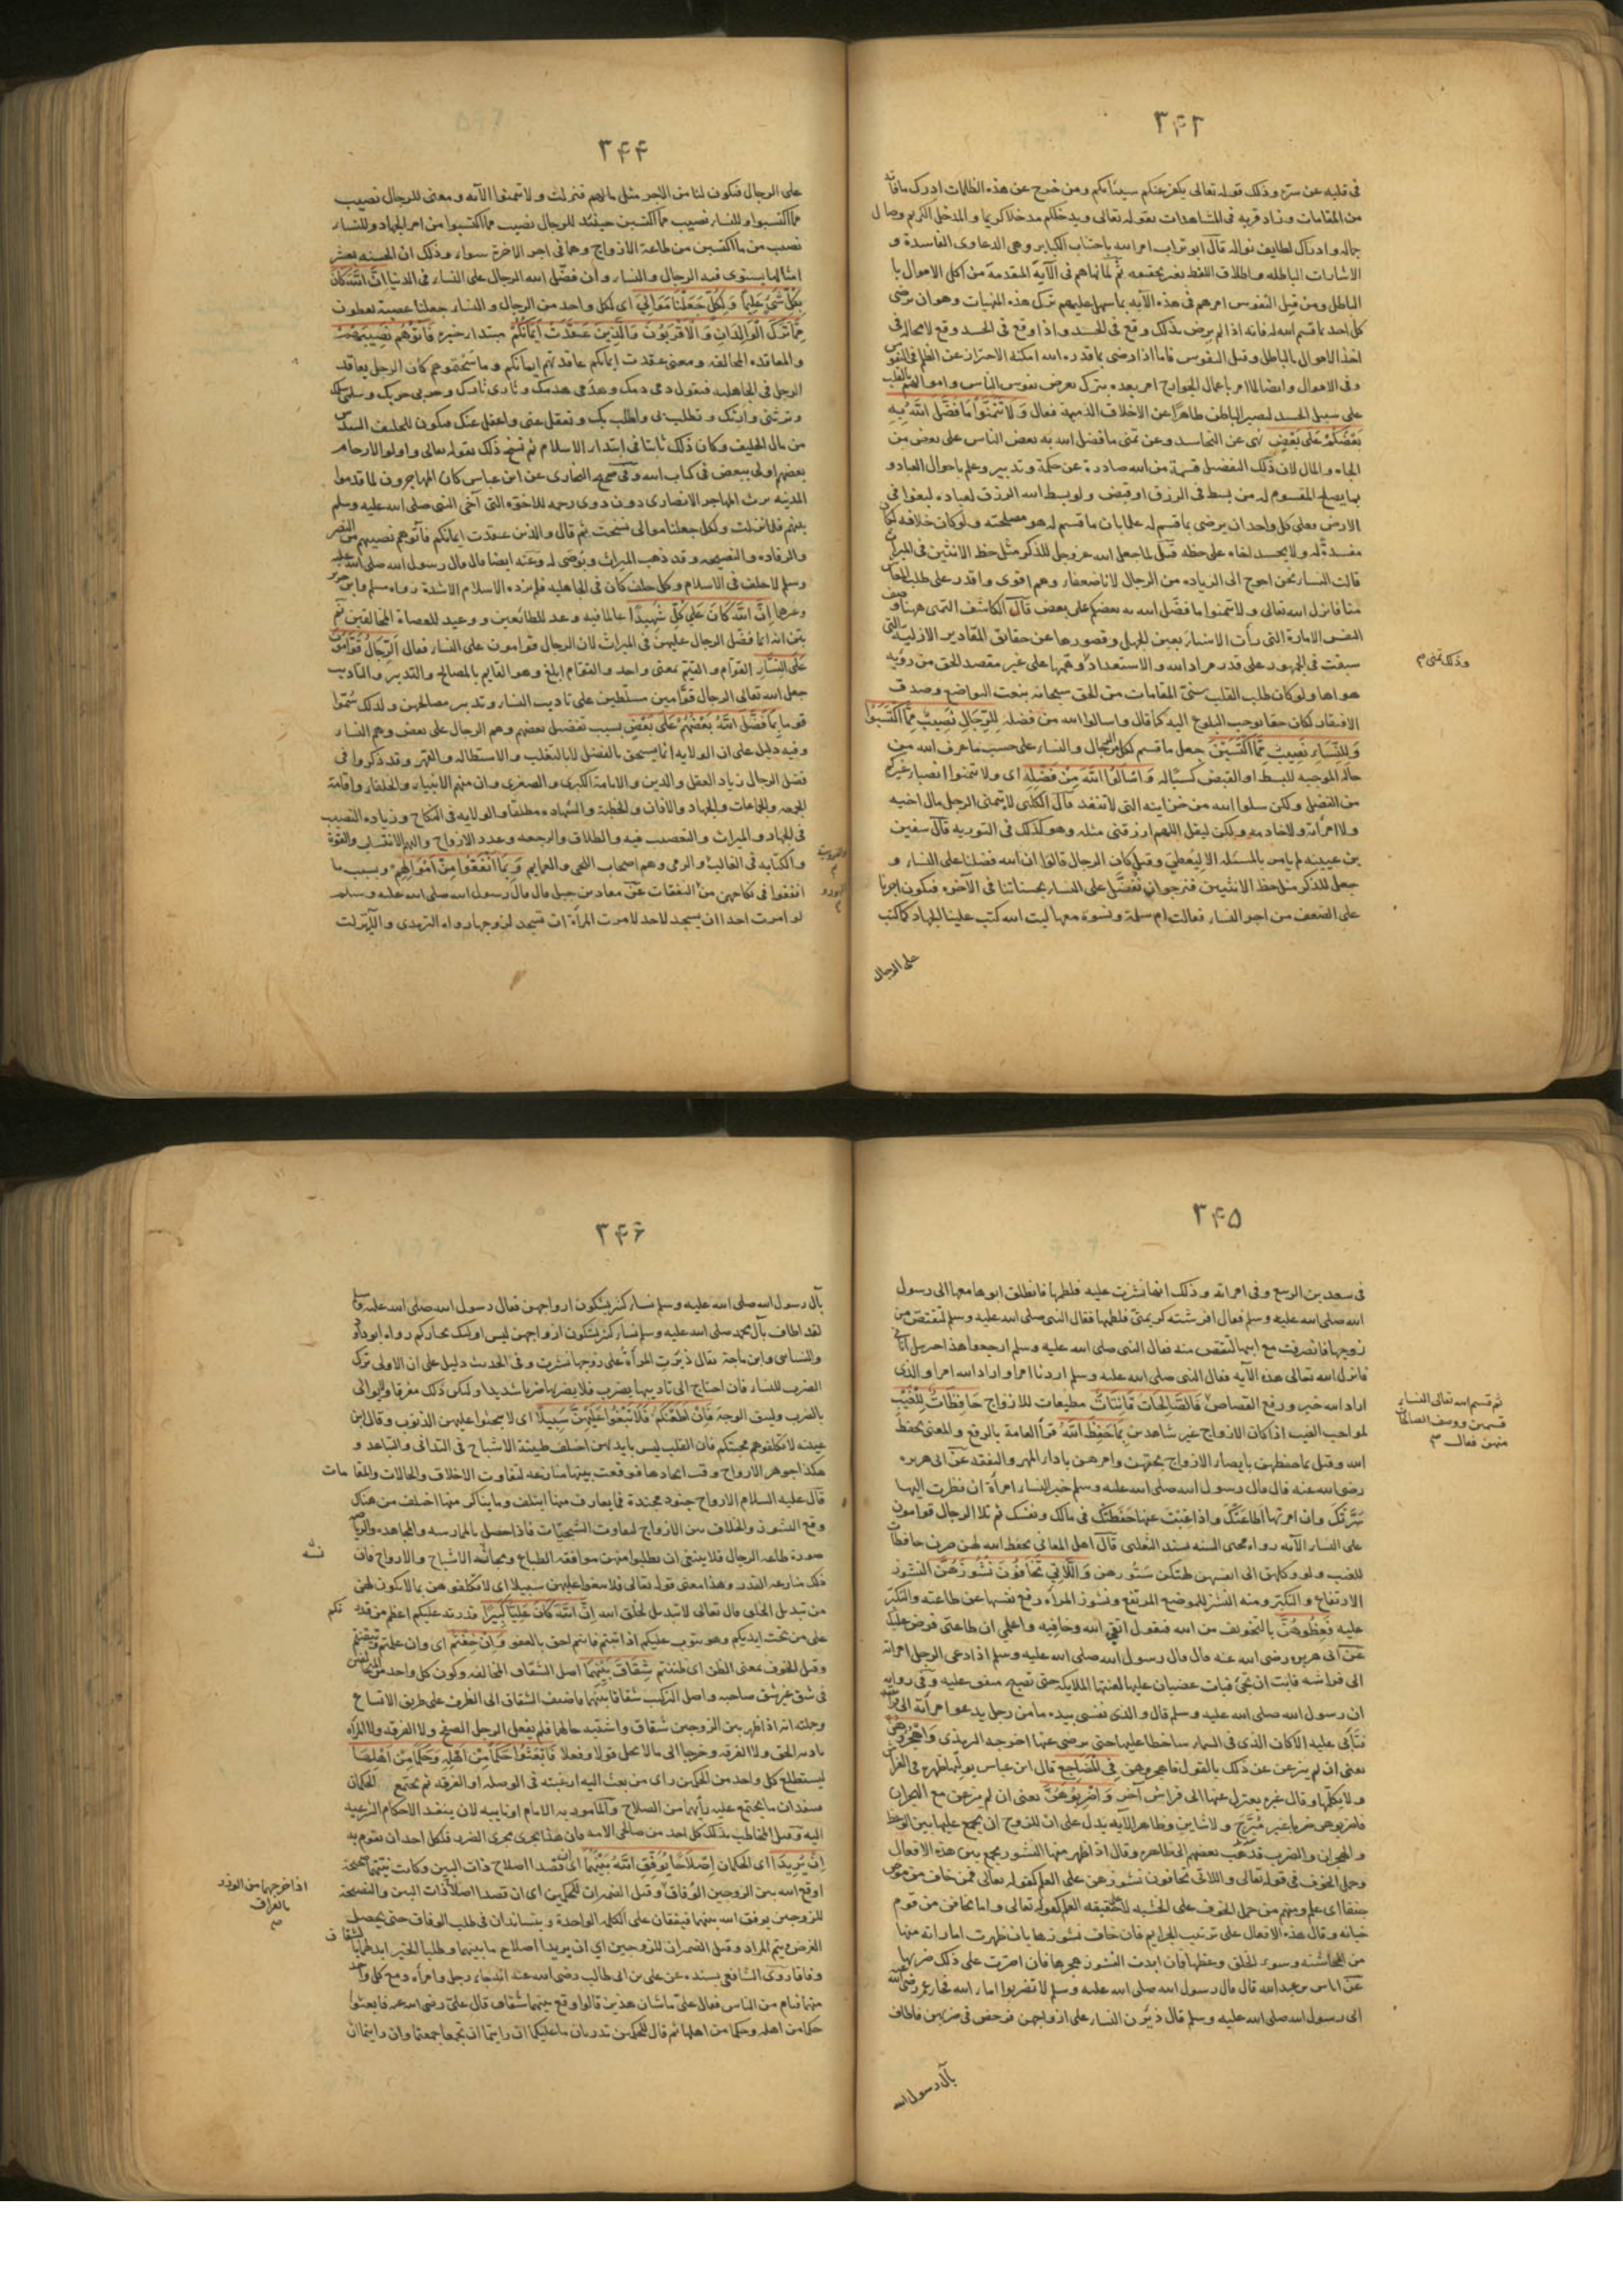 ٣۴٣
فى قلبه عن سره وذلك قوله تعالى يكفر عنكم سيئاتكم ومن خرج عن هذه الظلمات ادرك مافاته
من المقامات وزاد قربه فى المشاهدات بقوله تعالى ويدخلكم مدخلا كريما والمدخل الكريم وصال
جماله وادراك لطايف نواله قال ابو تراب امر الله باجتناب الكباير وهى الدعاوى الفاسدة و
الاشارات الباطله واطلاق اللفظ بغير حقيقه ثم لما نهاهم فى الآية المقدمة من اكل الاموال با
الباطل ومن قبل النفوس امرهم فى هذه الآيه بما سهل عليهم ترك هذه المنهيات وهو ان يرضى
كل احد بما قسم الله له فانه اذا لم يرض بذلك وقع فى الحسد واذا وقع فى الحسد وقع لا محاله فى
اخذ الاموال بالباطل وقتل النفوس فاما اذا رضى بما قدره الله امكنه الاحتراز عن الظلم فى النفوس
وفى الاموال وايضا لما امر باعمال الجوارح امر بعده بترك تعرض نفوس الناس واموالهم بالقلب
على سبيل الحسد ليصير الباطن طاهرا عن الاخلاق الذميمة فقال وَلَا تَتَمَنَّوْا مَا فَضَّلَ اللَّهُ بِهِ
بَعْضَكُمْ عَلَى بَعْضٍ نهى عن التحاسد وعن تمنى ما فضل الله به بعض الناس على بعض من
الجاه والمال لان ذلك التفضيل قسمة من الله صادرة عن حكمة وتدبير وعلم باحوال العباد و
بما يصلح المقسوم له من بسط فى الرزق او قبض ولو بسط الله الرزق لعباده لبغوا فى
الارض فعلى كل واحد ان يرضى بما قسم له علما بان ما قسم له هو مصلحته ولو كان خلافه لكان
مفسدة له ولا يحسد اخاه على حظه قيل لما جعل الله عز وجل للذكر مثل حظ الانثيين فى الميراث
قالت النساء نحن احوج الى الزياده من الرجال لانا ضعفاء وهم اقوى واقدر على طلب المعاش
منا فانزل الله تعالى ولا تتمنوا ما فضل الله به بعضكم على بعض قال الكاشف التمنى ههنا وصف
النفس الامارة التى رأت الاشياء بعين الجهل وقصورها عن حقائق المقادير الازلية التى
سبقت فى الجمهور على قدر مراد الله والاستعداد وتمنيها على غير مقصد الحق من رؤيه
هواها ولو كان طلب القلب سنى المقامات من الحق سبحانه بنعت التواضع وصدق
الافتقار لكان حقا يوجب البلوغ اليه كما قال واسالوا الله من فضله لِلرِّجَالِ نَصِيبٌ مِمَّا اكْتَسَبُوا
وَلِلنِّسَاءِ نَصِيبٌ مِمَّا اكْتَسَبْنَ جعل ما قسم لكل من الرجال والنساء على حسب ما عرف الله من
حاله الموجبه للبسط او القبض كسبا له وَاسْأَلُوا اللَّهَ مِنْ فَضْلِهِ اى ولا تتمنوا انصباء غيركم
من الفضل ولكن سلوا الله من خزاينه التى لا تنفد قال الكلبى لا يتمنى الرجل مال اخيه
ولا امرأته ولا خادمه ولكن ليقل اللهم ارزقنى مثله وهو كذلك فى التوريه قال سفين
بن عيينه لم يامر بالمسئله الا ليعطى وقيل كان الرجال قالوا ان الله فضلنا على النساء و
جعل للذكر مثل حظ الانثيين فنرجوا ان نفضل على النساء بحسناتنا فى الآخره فيكون اجرنا
على الضعف من اجر النساء فقالت ام سلمة ونسوة معها ليت الله كتب علينا الجهاد كما كتب
على الرجال
وذلك تمنى م
٣۴۴
على الرجال فيكون لنا من الاجر مثل مالهم فنزلت ولا تتمنوا الآيه ومعنى للرجال نصيب
مما اكتسبوا وللنساء نصيب مما اكتسبن حينئذ للرجال نصيب مما اكتسبوا من امر الجهاد وللنساء
نصيب من ما اكتسبن من طاعة الازواج وهما فى اجر الاخرة سواء وذلك ان الحسنه بعشر
امثالها يستوى فيه الرجال والنساء وان فضل الله الرجال على النساء فى الدنيا إِنَّ اللَّهَ كَانَ
بِكُلِّ شَيْءٍ عَلِيمًا وَلِكُلٍّ جَعَلْنَا مَوَالِيَ اى لكل واحد من الرجال والنساء جعلنا عصبة يعطون
مِمَّا تَرَكَ الْوَالِدَانِ وَالْأَقْرَبُونَ وَالَّذِينَ عَقَدَتْ أَيْمَانُكُمْ مبتداء خبره فَآتُوهُمْ نَصِيبَهُمْ
والمعاقده المحالفه ومعنى عقدت ايمانكم عاقدتهم ايمانكم وماسحتموهم كان الرجل يعاقد
الرجل فى الجاهليه فيقول دمى دمك وهدمى هدمك وثارى ثارك وحربى حربك وسلمى سلمك
وترثنى وارثك وتطلب بى واطلب بك وتعقل عنى واعقل عنك فيكون للحليف السدس
من مال الحليف وكان ذلك ثابتا فى ابتداء الاسلام ثم نسخ ذلك بقوله تعالى واولوا الارحام
بعضهم اولى ببعض فى كتاب الله وفى صحيح البخارى عن ابن عباس كان المهاجرون لما قدموا
المدينه يرث المهاجر الانصارى دون ذوى رحمه للاخوه التى آخى النبى صلى الله عليه وسلم
بينهم فلما نزلت ولكل جعلنا موالى نسخت ثم قال والذين عقدت ايمانكم فآتوهم نصيبهم من النصر
والرفاده والنصيحه وقد ذهب الميراث ويوصى له وعنه ايضا قال قال رسول الله صلى الله عليه
وسلم لا حلف فى الاسلام وكل حلف كان فى الجاهليه فلم يزده الاسلام الا شدة رواه مسلم وابن جرير
وغيرها إِنَّ اللَّهَ كَانَ عَلَى كُلِّ شَيْءٍ شَهِيدًا عالما فيه وعد للطائعين ووعيد للعصاة المخالفين ثم
بين انه انما فضل الرجال عليهن فى الميراث لان الرجال قوامون على النساء فقال الرِّجَالُ قَوَّامُونَ
عَلَى النِّسَاءِ القوام والقيم بمعنى واحد والقوام ابلغ وهو القايم بالمصالح والتدبير والتاديب
جعل الله تعالى الرجال قوامين مسلطين على تاديب النساء وتدبير مصالحهن ولذلك سموا
قوما بِمَا فَضَّلَ اللَّهُ بَعْضَهُمْ عَلَى بَعْضٍ بسبب تفضيل بعضهم وهم الرجال على بعض وهم النساء
وفيه دليل على ان الولايه انما يستحق بالفضل لا بالتغلب والاستطاله والقهر وقد ذكروا فى
فضل الرجال زياد العقل والدين والامامة الكبرى والصغرى وان منهم الانبياء والخلفاء واقامة
الجمعه والجماعات والجهاد والاذان والخطبة والشهاده مطلقا والولايه فى النكاح وزياده النصيب
فى الجهاد والميراث والتعصيب فيه والطلاق والرجعه وعدد الازواج واليهم الانتساب والقوة
والكتابه فى الغالب والرمى وهم اصحاب اللحى والعمايم وَبِمَا أَنْفَقُوا مِنْ أَمْوَالِهِمْ وبسبب ما
انفقوا فى نكاحهن من النفقات عن معاذ بن جبل قال قال رسول الله صلى الله عليه وسلم
لو امرت احدا ان يسجد لاحد لامرت المرأة ان تسجد لزوجها رواه الترمذى والآيه نزلت
٣۴۵
فى سعد بن الربيع وفى امراته وذلك انها نشزت عليه فلطمها فانطلق ابوها معها الى رسول
الله صلى الله عليه وسلم فقال افرشته كريمتى فلطمها فقال النبى صلى الله عليه وسلم لتقتص من
زوجها فانصرفت مع ابيها لتقتص منه فقال النبى صلى الله عليه وسلم ارجعوا هذا جبرئيل اتانى
فانزل الله تعالى هذه الآيه فقال النبى صلى الله عليه وسلم اردنا امرا واراد الله امرا والذى
اراد الله خير ورفع القصاص فَالصَّالِحَاتُ قَانِتَاتٌ مطيعات للازواج حَافِظَاتٌ لِلْغَيْبِ
لمواجب الغيب اذا كان الازواج غير شاهدين بِمَا حَفِظَ اللَّهُ قرأ العامة بالرفع والمعنى بحفظ
الله وقيل بما حفظهن بايصاء الازواج بحقهن وامرهم باداء المهر والنفقه عن ابى هريره
رضى الله عنه قال قال رسول الله صلى الله عليه وسلم خير النساء امرأة ان نظرت اليها
سَرَّتْكَ وان امرتها اطاعتك واذا غبت عنها حفظتك فى مالك ونفسك ثم تلا الرجال قوامون
على النساء الآيه رواه محيى السنه بسند الثعلبى قال اهل المعانى بحفظ الله لهن صرن حافظات
للغيب ولو وكلهن الى انفسهن لهتكن ستورهن وَاللَّاتِي تَخَافُونَ نُشُوزَهُنَّ النشوز
الارتفاع والتكبر ومنه النشز للموضع المرتفع ونشوز المرأه رفع نفسها عن طاعته والتكبر
عليه فَعِظُوهُنَّ بالتخويف من الله فيقول اتقى الله وخافيه واعلمى ان طاعتى فرض عليك
عن ابى هريره رضى الله عنه قال قال رسول الله صلى الله عليه وسلم اذا دعى الرجل امراته
الى فراشه فابت ان تجئ فبات غضبان عليها لعنتها الملايكه حتى تصبح متفق عليه وفى روايه
ان رسول الله صلى الله عليه وسلم قال والذى نفسى بيده ما من رجل يدعو امرأته الى فراشه
فتأبى عليه الا كان الذى فى السماء ساخطا عليها حتى يرضى عنها اخرجه الترمذى وَاهْجُرُوهُنَّ
يعنى ان لم ينزعن عن ذلك بالقول فاهجروهن فِي الْمَضَاجِعِ قال ابن عباس يوليها ظهره فى الفراش
ولا يكلمها وقال غيره يعتزل عنها الى فراش آخر وَاضْرِبُوهُنَّ يعنى ان لم ينزعن مع الهجران
فاضربوهن ضربا غير مُبَرِّحٍ ولا شاين وظاهر الآيه يدل على ان للزوج ان يجمع عليها بين الوعظ
والهجران والضرب فذهب بعضهم الى ظاهره وقال اذا ظهر منها النشوز جمع بين هذه الافعال
وحمل الخوف فى قوله تعالى واللاتى تخافون نشوزهن على العلم كقوله تعالى فمن خاف من موص
جنفا اى علم ومنهم من حمل الخوف على الخشيه لا حقيقه العلم كقوله تعالى واما تخافن من قوم
خيانه وقال هذه الافعال على ترتيب الجرايم فان خاف نشوزها بان ظهرت اماراته منها
من المخاشنه وسوء الخلق وعظها فان ابدت النشوز هجرها فان اصرت على ذلك ضربها
عن اياس بن عبد الله قال قال رسول الله صلى الله عليه وسلم لا تضربوا اماء الله فجاء عمر رضى الله عنه
الى رسول الله صلى الله عليه وسلم قال ذئرن النساء على ازواجهن فرخص فى ضربهن فاطاف
بآل رسول الله
ثم قسم الله تعالى النساء
قسمين ووصف الصالحات
منهن فقال م
٣۴۶
بآل رسول الله صلى الله عليه وسلم نساء كثير يشكون ازواجهن فقال رسول الله صلى الله عليه وسلم
لقد اطاف بآل محمد صلى الله عليه وسلم نساء كثير يشكون ازواجهن ليس اوليك بخياركم رواه ابو داود
والنسائى وابن ماجة يقال ذئرت المرأة على زوجها نشزت وفى الحديث دليل على ان الاولى ترك
الضرب للنساء فان احتاج الى تاديبها بضرب فلا يضربها ضربا شديدا وليكن ذلك مفرقا ولا يوالى
بالضرب وليتق الوجه فَإِنْ أَطَعْنَكُمْ فَلَا تَبْغُوا عَلَيْهِنَّ سَبِيلًا اى لا تجنوا عليهن الذنوب وقال ابن
عيينه لا تكلفوهن محبتكم فان القلب ليس بايديهن اختلف طينة الاشباح فى التدانى والتباعد و
هكذا جوهر الارواح وقت ايجادها فوقعت بينهما منازعه لتفاوت الاخلاق والحالات والمقامات
قال عليه السلام الارواح جنود مجندة فما تعارف منها ائتلف وما تناكر منها اختلف من هناك
وقع النشوز والخلاف بين الازواج لتفاوت السجيات فاذا حصل بالممارسه والمجاهده والرياضة
صورة طاعه الرجال فلا ينبغى ان يطلبوا منهن موافقه الطباع ومجانسه الاشباح والارواح فان
ذلك منازعه القدر وهذا معنى قوله تعالى فلا تبغوا عليهن سبيلا اى لا تكلفوهن بما لا يكون لهن
من تبديل الخلق قال تعالى لا تبديل لخلق الله إِنَّ اللَّهَ كَانَ عَلِيًّا كَبِيرًا قدرته عليكم اعظم من قدرتكم
على من تحت ايديكم وهو يتوب عليكم اذا تبتم فانتم احق بالعفو وَإِنْ خِفْتُمْ اى وان علمتم وتيقنتم
وقيل الخوف بمعنى الظن اى ظننتم شِقَاقَ بَيْنِهِمَا اصل الشقاق المخالفه وكون كل واحد من المتخالفين
فى شق غير شق صاحبه واصل التركيب شقاقا بينهما فاضيف الشقاق الى الظرف على طريق الاتساع
وجملته انه اذا ظهر بين الزوجين شقاق واشتبه حالهما فلم يفعل الرجل الصفح ولا الفرقه ولا المرأه
تاديه الحق ولا الفرقه وخرجا الى ما لا يحل قولا وفعلا فَابْعَثُوا حَكَمًا مِنْ أَهْلِهِ وَحَكَمًا مِنْ أَهْلِهَا
ليستطلع كل واحد من الحكمين راى من بعث اليه ارغبته فى الوصله او الفرقه ثم يجتمع الحكمان
فينفذان ما يجتمع عليه رأيهما من الصلاح والمامور به الامام او نايبه لان ينفذ الاحكام الشرعيه
اليه وقيل المخاطب بذلك كل احد من صالحى الامه فان هذا يجرى مجرى دفع الضرر فلكل احد ان يقوم به
إِنْ يُرِيدَا اى الحكمان إِصْلَاحًا يُوَفِّقِ اللَّهُ بَيْنَهُمَا اى ان قصدا اصلاح ذات البين وكانت نيتهما صحيحة
اوقع الله بين الزوجين الوفاق وقيل الضميران للحكمين اى ان قصدا اصلاح ذات البين والنصيحة
للزوجين يوفق الله بينهما فيتفقان على الكلمه الواحدة ويتساندان فى طلب الوفاق حتى يحصل
الغرض ويتم المراد وقيل الضميران للزوجين اى ان يريدا اصلاح ما بينهما وطلبا الخير ابدلهما بالشقاق
وفاقا روى الشافعى بسنده عن على بن ابى طالب رضى الله عنه انه جاءه رجل وامرأه ومع كل واحد
منهما فيام من الناس فقال على ما شان هذين قالوا وقع بينهما شقاق قال على رضى الله عنه فابعثوا
حكما من اهله وحكما من اهلها ثم قال للحكمين تدريان ما عليكما ان رايتما ان تجمعا جمعتما وان رايتما ان